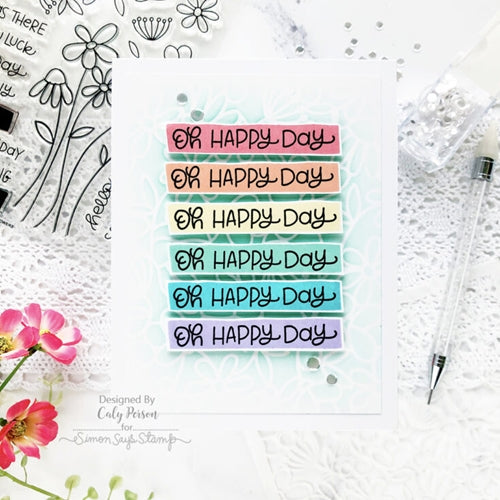 IS THERE
LUCK
DAY
hello
Oh HAPPY DAY
Oh HAPPY DAY
Oh HAPPY DAY
Oh HAPPY DAY
Oh HAPPY DAY
Oh HAPPY DAY
Designed By
Caly Person
for
Simon Says Stamp